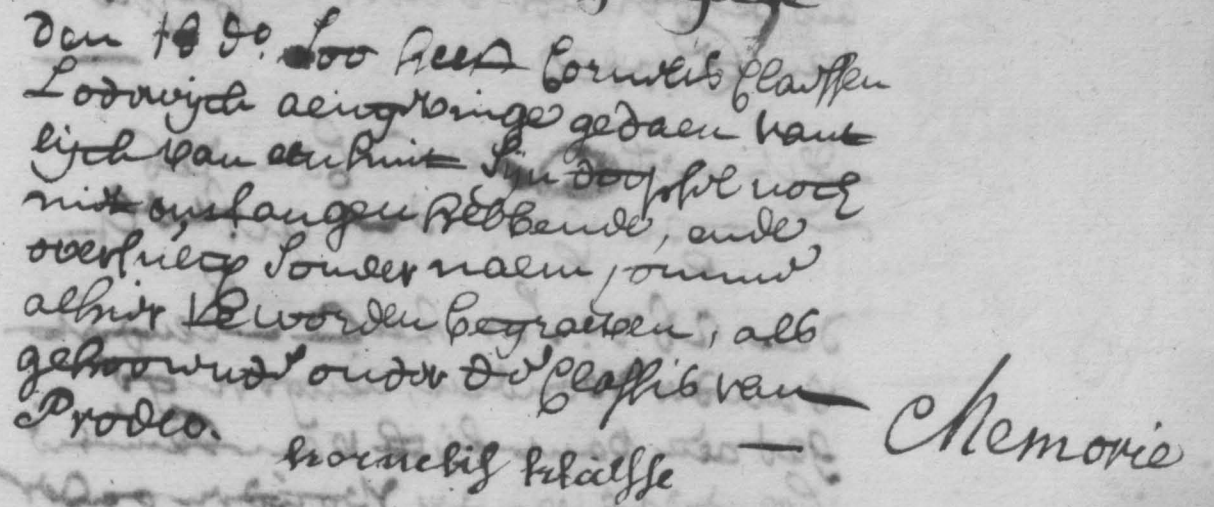 den 18 do. Soo heeft Cornelis Claessen
Lodewijck aengevinge gedaen vant
lijck van een kint Sijn doopsel noch
niet ontfangen hebbende, ende
overlueck Sonder naem, omme
alhier te worden begraeven, als
gehoorende onder de Classis van
Prodeo.
— Memorie
kornelis klaesse